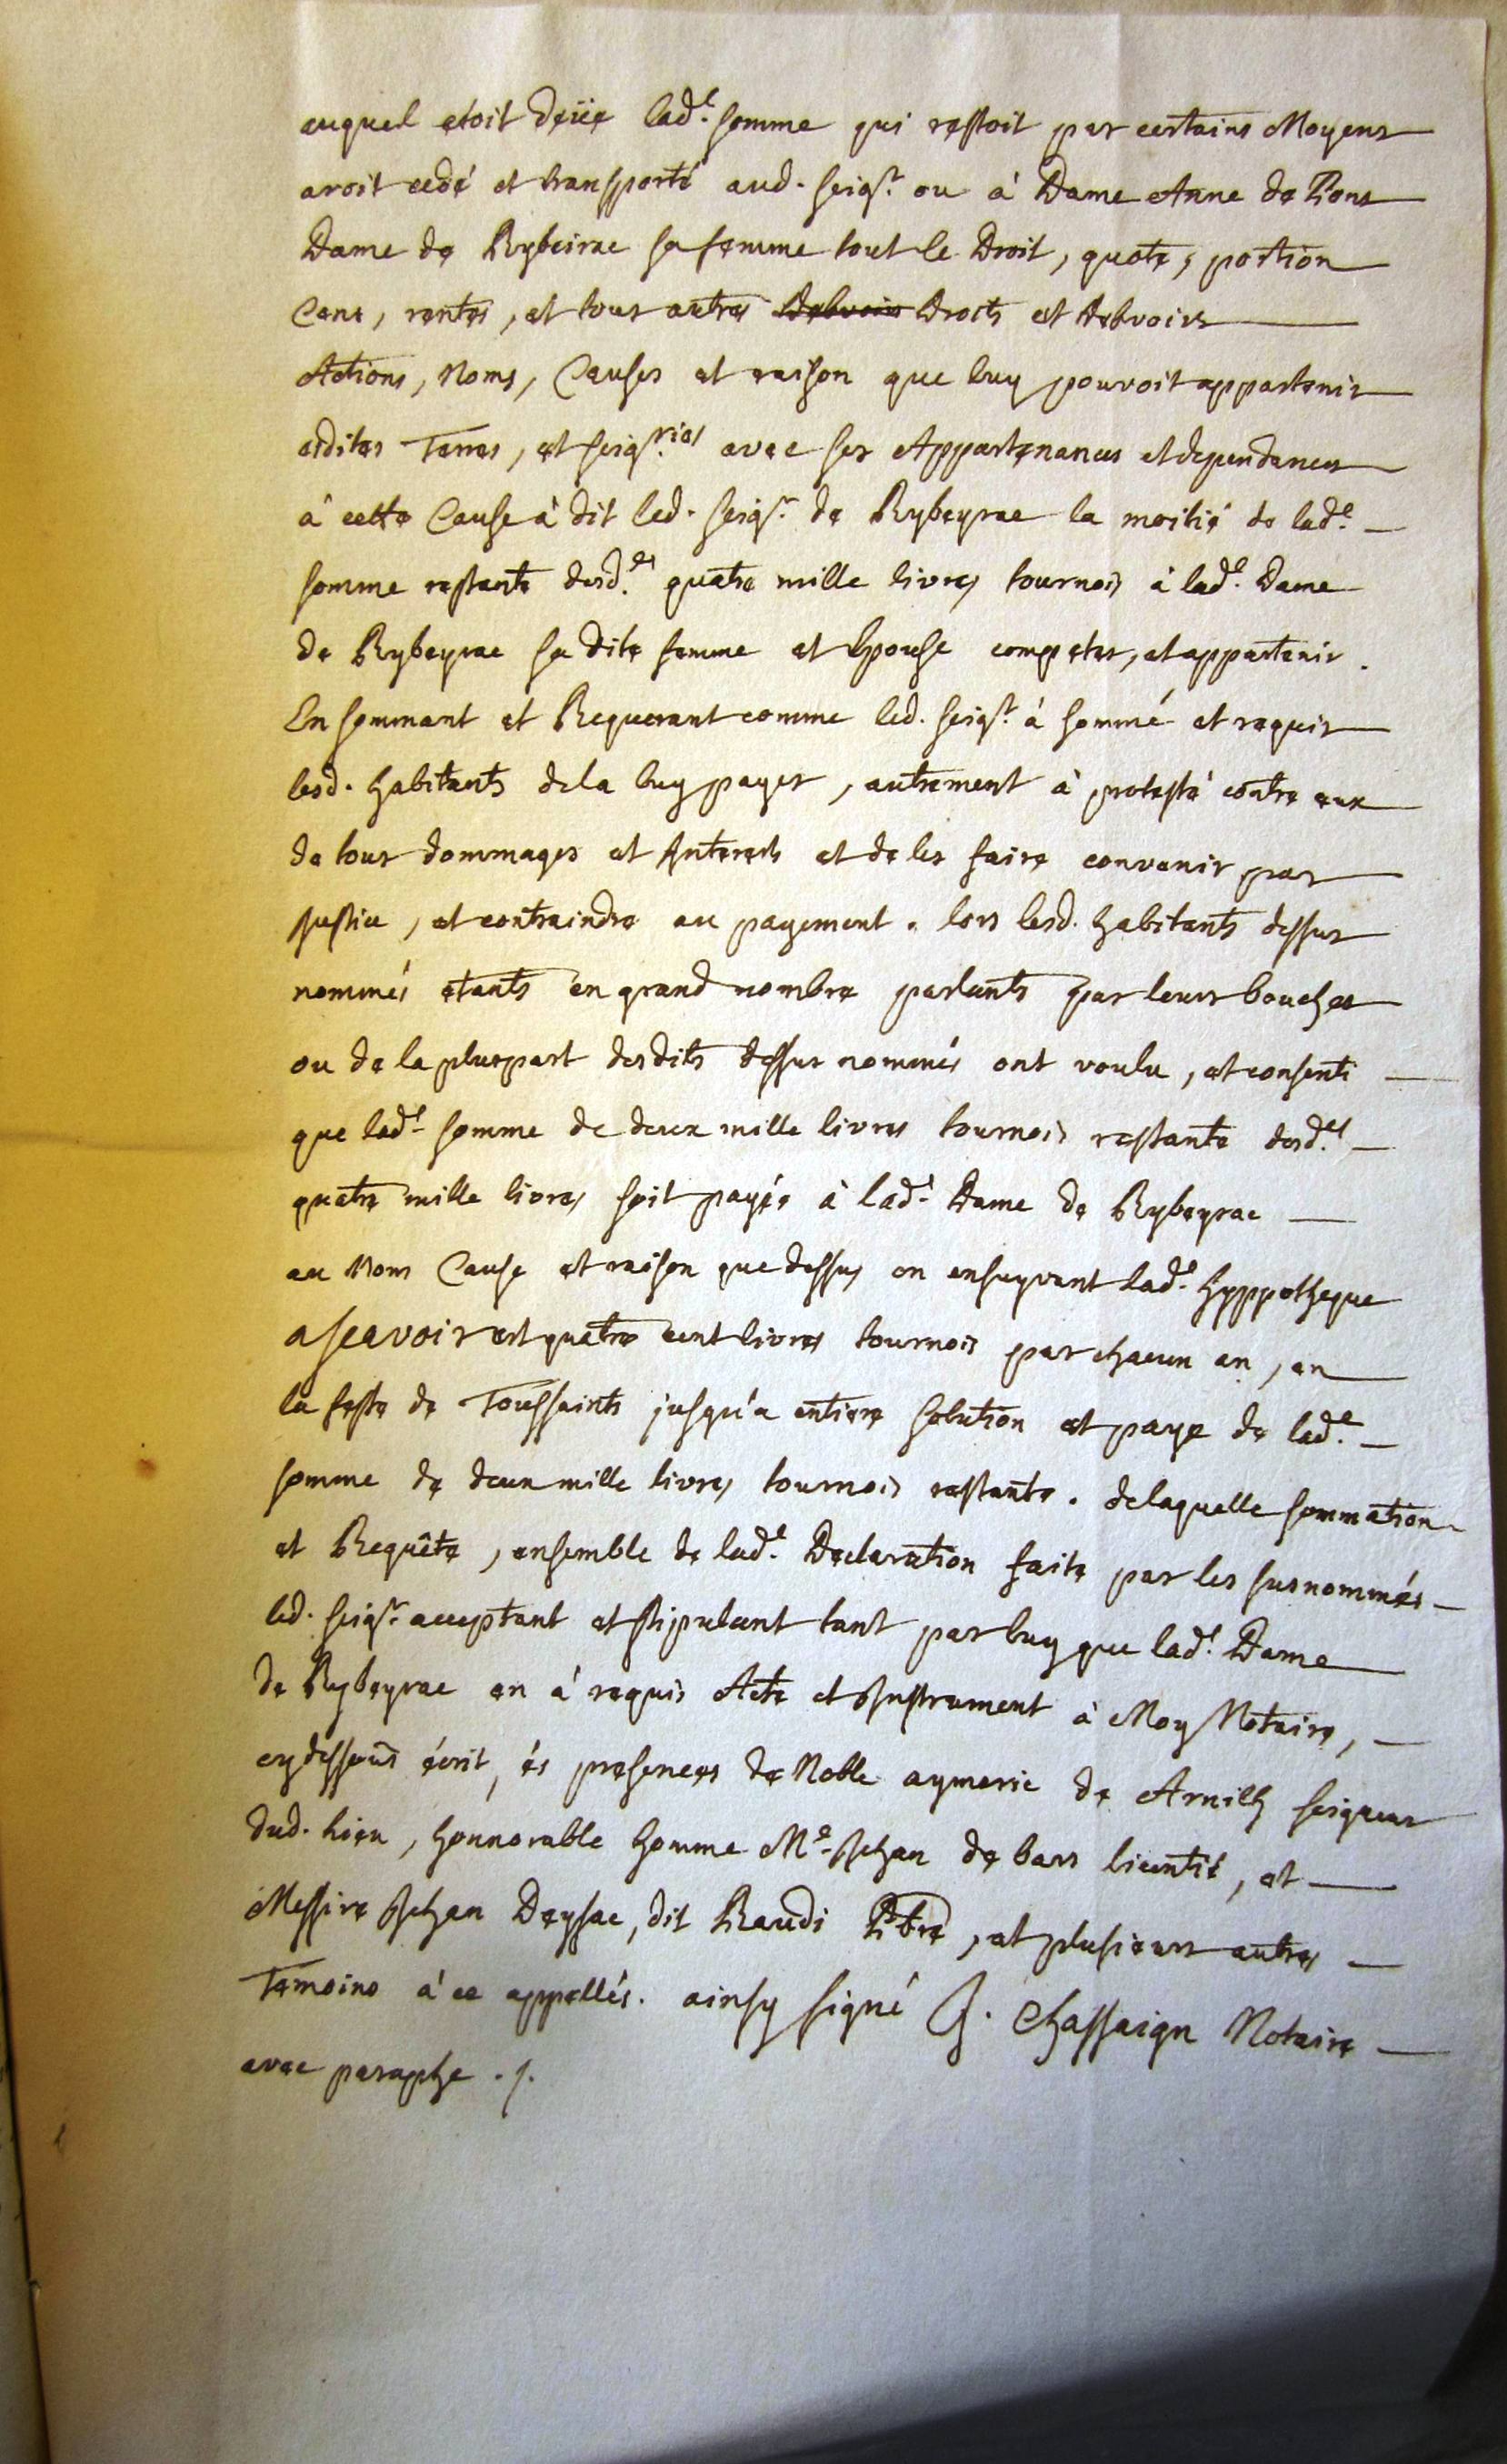 auquel etoit deüe lad.e somme qui restoit par certains Moyens
avoit cedé et transporté aud. seigr. ou à Dame Anne de Pons
Dame de Rybeirac sa femme tout le Droit, quote, portion
Cens, rentes, et tous autres Debvoirs Droits et Debvoirs
Actions, Noms, Causes et raison que luy pouvoit appartenir
esdites Terres, et seigr.ies avec ses Appartenances et dependances
à cette Cause à dit led. seigr. de Rybeyrac la moitié de lad.e
somme restante desd.es quatre mille livres tournois à lad.e Dame
de Rybeyrac sa dite femme et Epouse competer, et appartenir.
En sommant et Requerant comme led. seigr. à sommé et requis
lesd. habitants de la luy payer, autrement à protesté contre eux
de tous dommages et Interests et de les faire convenir par
Justice, et contraindre au payement. lors lesd. habitants dessus
nommés etants en grand nombre parlants par leurs bouches
ou de la pluspart desdits dessus nommés ont voulu, et consenti
que lad.e somme de deux mille livres tournois restante desd.es
quatre mille livres soit payée à lad.e Dame de Rybeyrac
au Nom Cause et raison que dessus en ensuyvant lad.e hyppotheque
ascavoir est quatre cent livres tournois par chacun an, en
la feste de Toussaints jusqu'a entiere solution et paye de lad.e
somme de deux mille livres tournois restante. de laquelle sommation
et Requête, ensemble de lad.e Declaration faite par les susnommés
led. seigr. acceptant et stipulant tant par luy que lad.e Dame
de Rybeyrac en à requis Acte et Instrument à Moy Notaire,
cy dessous écrit, és presences de Noble aymeric de Arnilh seigneur
dud. lieu, honnorable homme Me. Jehan de bars licentié, et
Messire Jehan Deysac, dit Raudi Pbre, et plusieurs autres
Temoins à ce appellés. ainsy signé J. Chassaign Notaire
avec paraphe ./.